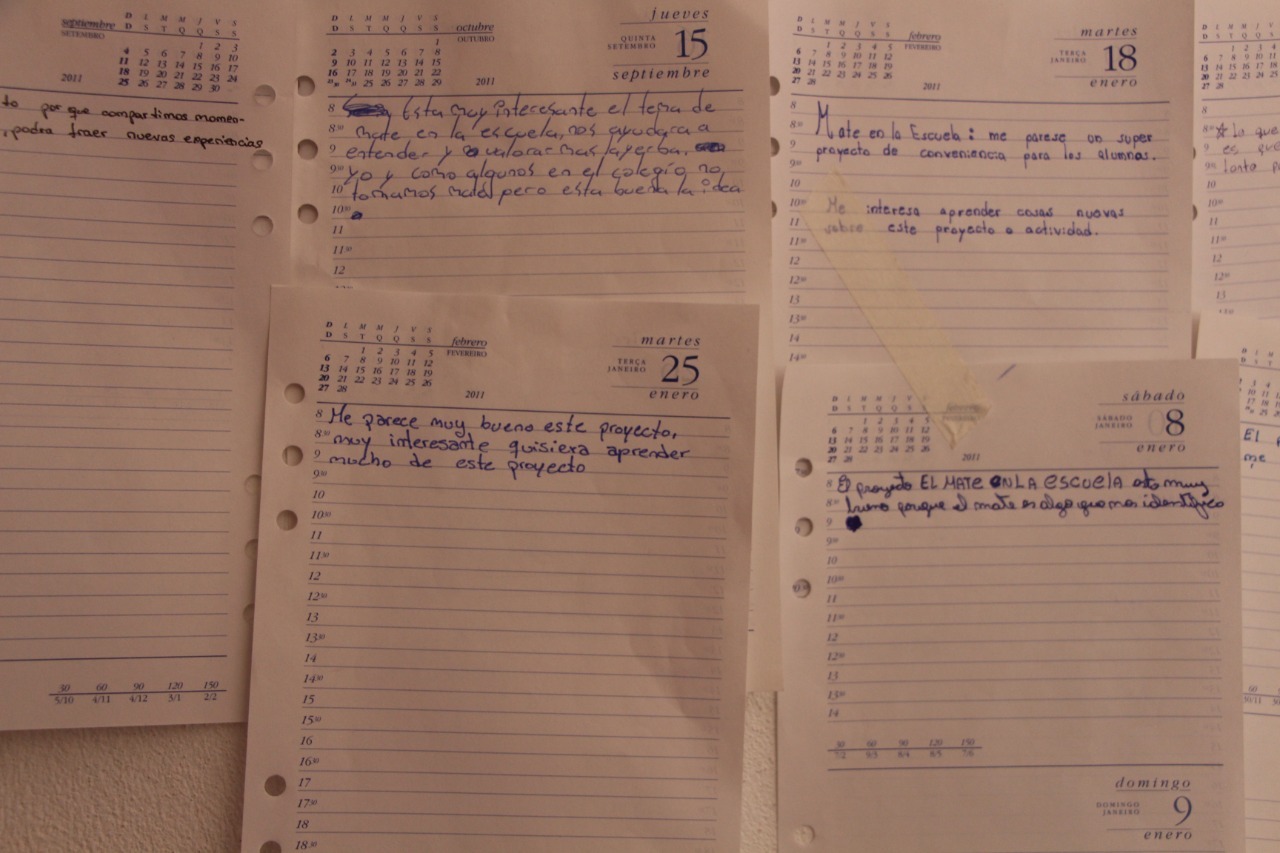 septiembre
SETEMBRO
D L M M J V S
D S T Q Q S S
1 2 3
4 5 6 7 8 9 10
11 12 13 14 15 16 17
18 19 20 21 22 23 24
25 26 27 28 29 30
2011
to por que compartimos momen-
podra traer nuevas experiencias
30 60 90 120 150
5/10 4/11 4/12 3/1 2/2
D L M M J V S
D S T Q Q S S
octubre
OUTUBRO
1
2 3 4 5 6 7 8
9 10 11 12 13 14 15
16 17 18 19 20 21 22
25 26 27 28 29
2011
jueves
QUINTA
SETEMBRO
15
septiembre
8 Esta muy interesante el tema de
8³⁰ mate en la escuela, nos ayudara a
9 entender y valorar mas la yerba.
9³⁰ yo y como algunos en el colegio no
10 tomamos mate pero esta buena la idea
10³⁰
11
11³⁰
12
D L M M J V S
D S T Q Q S S
febrero
FEVEREIRO
1 2 3 4 5
6 7 8 9 10 11 12
13 14 15 16 17 18 19
20 21 22 23 24 25 26
27 28
2011
martes
TERÇA
JANEIRO
18
enero
8
8³⁰ Mate en la Escuela: me parese un super
9 proyecto de conveniencia para los alumnos.
9³⁰
10
10³⁰ Me interesa aprender cosas nuevas
11 sobre este proyecto o actividad.
11³⁰
12
12³⁰
13
13³⁰
14
14³⁰
8
8³⁰ Lo que
9 es que
9³⁰ tanto
10
10³⁰
11
11³⁰
12
12³⁰
13
D L M M J V S
D S T Q Q S S
febrero
FEVEREIRO
1 2 3 4 5
6 7 8 9 10 11 12
13 14 15 16 17 18 19
20 21 22 23 24 25 26
27 28
2011
martes
TERÇA
JANEIRO
25
enero
8 Me parece muy bueno este proyecto,
8³⁰ muy interesante quisiera aprender
9 mucho de este proyecto
9³⁰
10
10³⁰
11
11³⁰
12
12³⁰
13
13³⁰
14
14³⁰
15
15³⁰
16
16³⁰
17
17³⁰
18
18³⁰
D L M M J V S
D S T Q Q S S
febrero
1 2 3 4 5
6 7 8 9 10 11 12
13 14 15 16 17 18 19
20 21 22 23 24 25 26
27 28
2011
sábado
SÁBADO
JANEIRO
8
enero
8 El proyecto EL MATE EN LA ESCUELA esta muy
8³⁰ bueno porque el mate es algo que nos identifica
9
9³⁰
10
10³⁰
11
11³⁰
12
12³⁰
13
13³⁰
14
30 60 90 120 150
7/2 9/3 8/4 8/5 7/6
domingo
DOMINGO
JANEIRO
9
enero
El
me